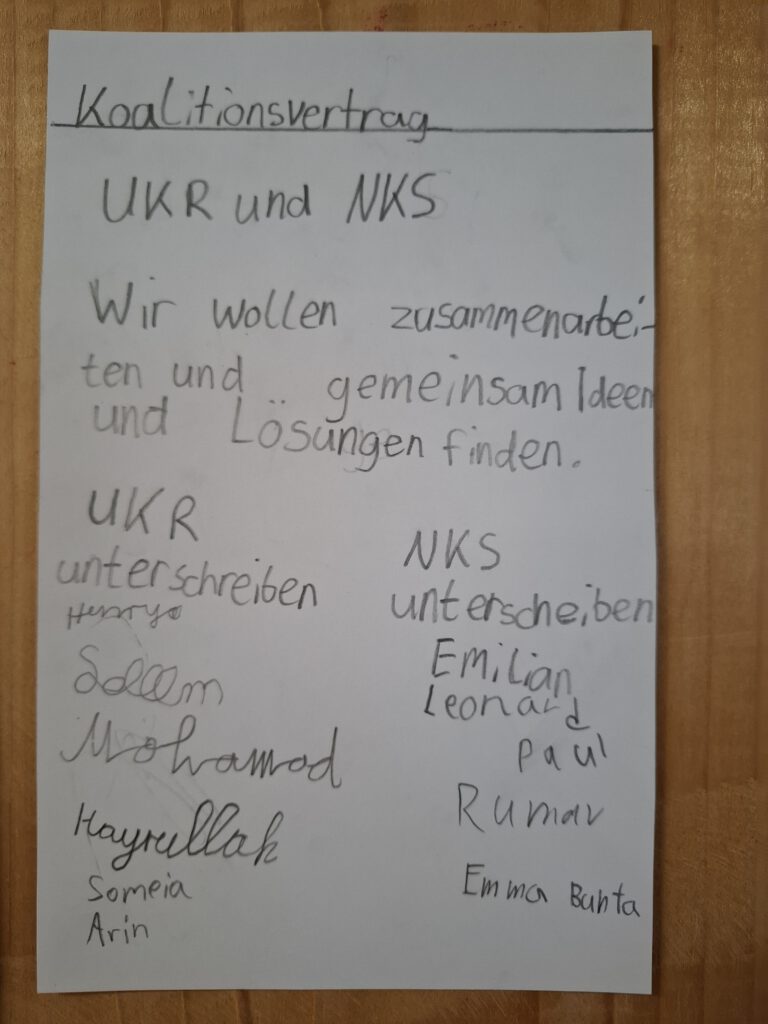 Koalitionsvertrag
UKR und NKS
Wir wollen zusammenarbei-
ten und gemeinsam Ideen
und Lösungen finden.
UKR
unterschreiben
Saleem
Mohamad
Hayrullah
Someia
Arin
NKS
unterscheiben
Emilian
Leonard
Paul
Rumar
Emma Bunta